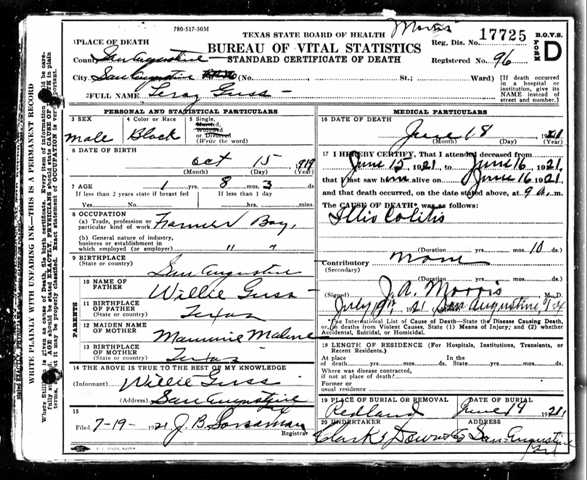 780-517-505M
TEXAS STATE BOARD OF HEALTH Morris
BUREAU OF VITAL STATISTICS
STANDARD CERTIFICATE OF DEATH
Reg. Dis. No. 17725
Registered No. 96
B.O.V.S. FORM D
1 PLACE OF DEATH
County San Augustine
City San Augustine No. St.; Ward)
[If death occurred in a hospital or institution, give its NAME instead of street and number.]
2 FULL NAME Leroy Guss
PERSONAL AND STATISTICAL PARTICULARS
3 SEX Male
4 Color or Race Black
5 Single, Married, Widowed or Divorced (Write the word)
6 DATE OF BIRTH
Oct 15 1919
(Month) (Day) (Yr.)
7 AGE 1 8 3 ds.
If less than 2 years state if breast fed If less than 1 day
Yes No hrs. mins.
8 OCCUPATION
(a) Trade, profession or particular kind of work Farmer Boy,
(b) General nature of industry, business or establishment in which employed (or employer) " "
9 BIRTHPLACE (State or country) San Augustine
PARENTS
10 NAME OF FATHER Willie Guss
11 BIRTHPLACE OF FATHER (State or country) Texas
12 MAIDEN NAME OF MOTHER
13 BIRTHPLACE OF MOTHER (State or country) Texas
14 THE ABOVE IS TRUE TO THE BEST OF MY KNOWLEDGE
(Informant) Willie Guss
(Address) San Augustine Tex
15
Filed 7-19- 1921 J. B. Registrar
MEDICAL PARTICULARS
16 DATE OF DEATH
June 18 1921
(Month) (Day) (Yr.)
17 I HEREBY CERTIFY, That I attended deceased from
June 15, 1921, to June 16, 1921,
that I last saw him alive on June 16, 1921
and that death occurred, on the date stated above, at 9 a.m.
The CAUSE OF DEATH was as follows:
Illio Colitis
(Duration) yrs. mos. 10 ds.
Contributory None
(Secondary)
(Duration) yrs. mos. ds.
(Signed) J. A. Morris M. D.
July 19, 1921 San Augustine Tex
Use International List of Cause of Death—State the Disease Causing Death, or, in deaths from Violent Causes, State (1) Means of Injury; and (2) whether Accidental, Suicidal, or Homicidal.
18 LENGTH OF RESIDENCE (For Hospitals, Institutions, Transients, or Recent Residents.)
At place of death yrs. mos. ds. In the State yrs. mos. ds.
Where was disease contracted, if not at place of death?
Former or usual residence
19 PLACE OF BURIAL OR REMOVAL DATE OF BURIAL
Redland June 19 1921
20 UNDERTAKER ADDRESS
Clark & Downs Co San Augustine Tex
WRITE PLAINLY WITH UNFADING INK—THIS IS A PERMANENT RECORD